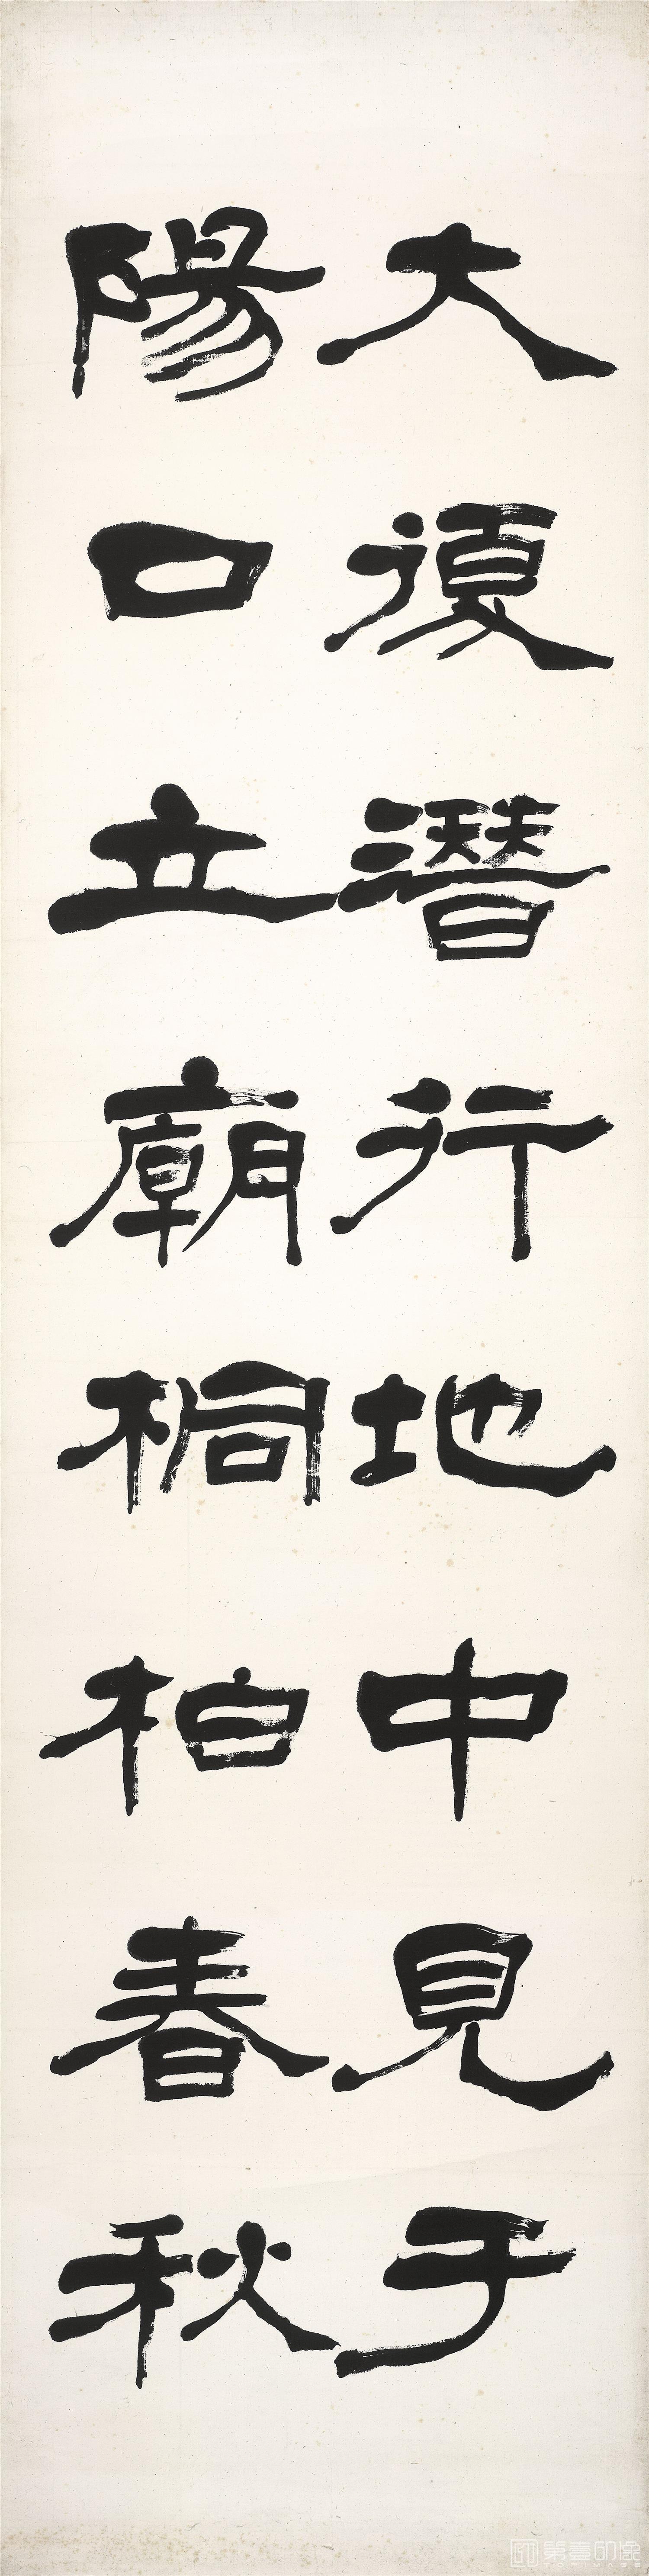 大復潛行地中見于
陽口立廟桐柏春秋
第壹印象